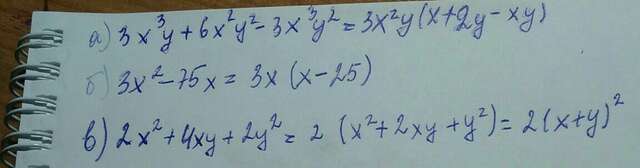 а) 3x³y + 6x²y² - 3x³y² = 3x²y(x + 2y - xy)
б) 3x² - 75x = 3x (x - 25)
в) 2x² + 4xy + 2y² = 2 (x² + 2xy + y²) = 2(x + y)²